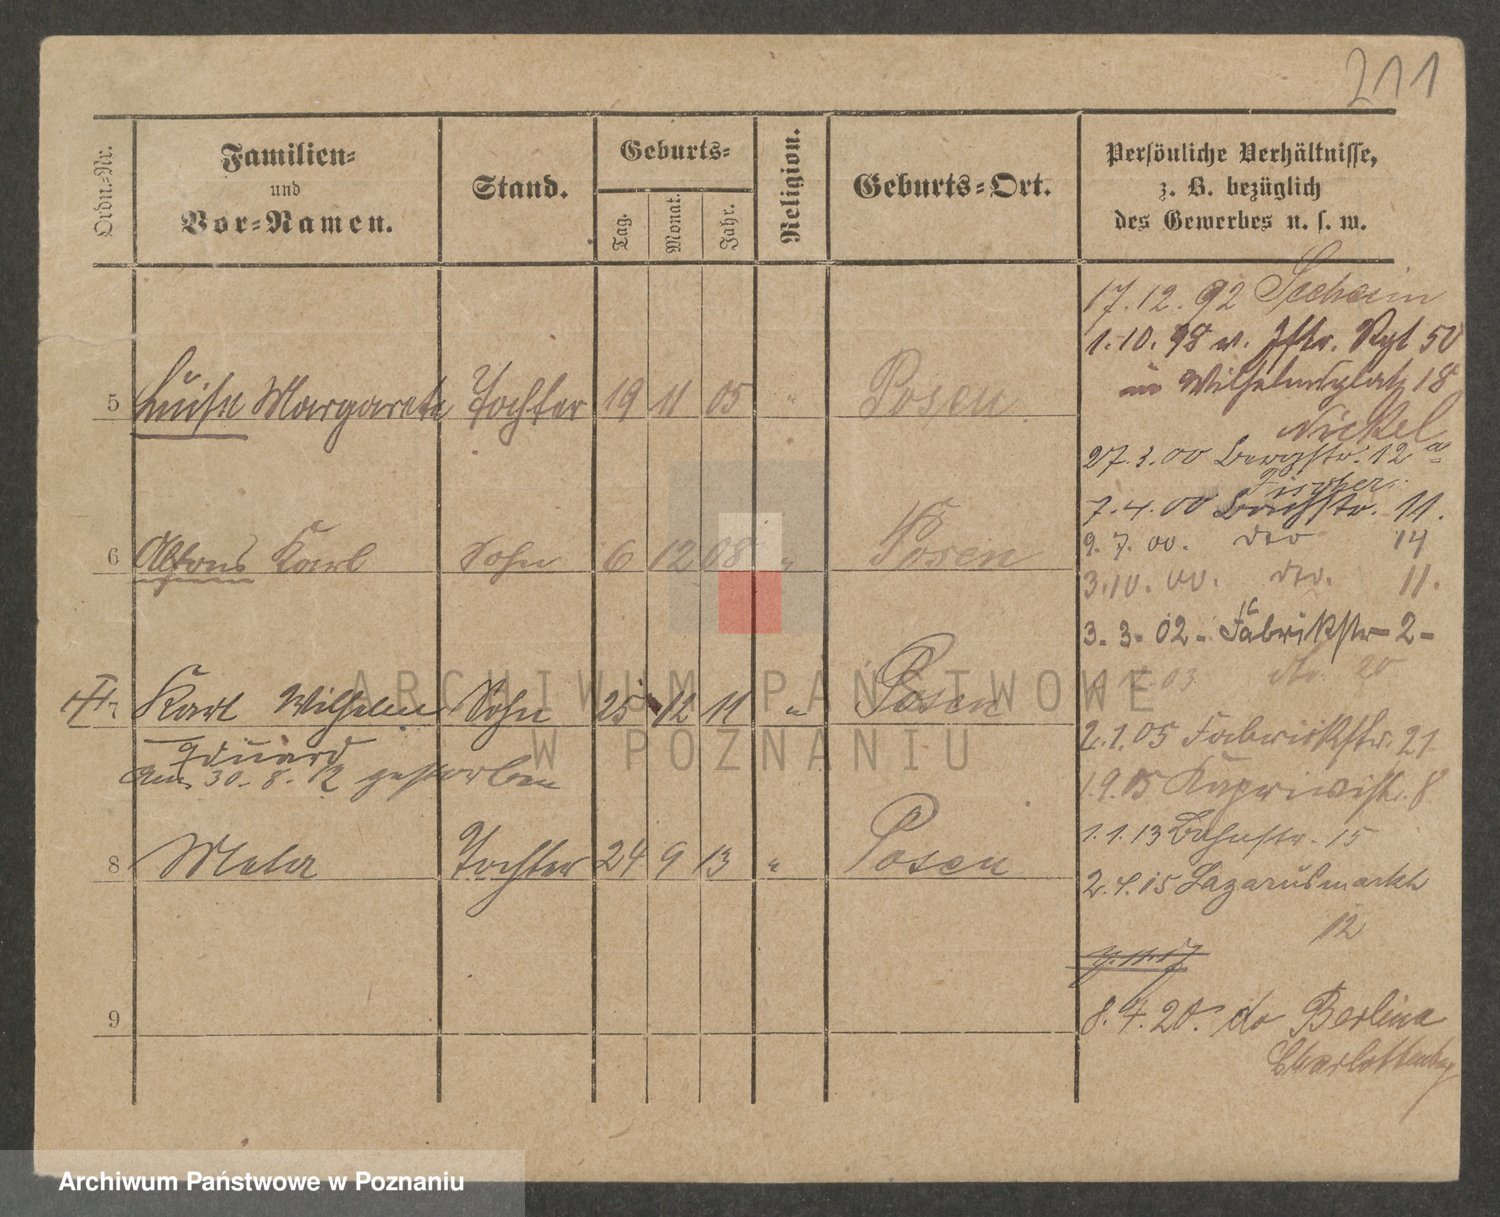 211
Ordn.-Nr.
Familien-
und
Vor-Namen.
Stand.
Geburts-
Tag.
Monat.
Jahr.
Religion.
Geburts-Ort.
Persönliche Verhältnisse,
z. B. bezüglich
des Gewerbes u. s. w.
17.12.92
1.10.98 v. Rgt 50
Wilhelmsplatz 18
Nickel
5 Luise Margarete Tochter 19 11 05 " Posen
27.3.00 Bergstr. 12 a
Fischer
7.4.00 11.
9.7.00. dto 14
3.10.00. dto. 11.
6 Alfons Karl Sohn 6 12 08 " Posen
3.3.02 - Fabrikstr - 2 -
03 dto. 20
7 Karl Wilhelm Sohn 25 12 11 " Posen
Eduard
am 30.8.12 gestorben
2.1.05 Fabrikstr. 21
1.9.05 Kapriwistr. 8
1.1.13 Bahnstr. 15
8 Mela Tochter 24 9 13 " Posen
2.4.15 Lazarusmarkt
12
9
8.4.20. do Berlina
Charlottenburg
ARCHIWUM PAŃSTWOWE
W POZNANIU
Archiwum Państwowe w Poznaniu